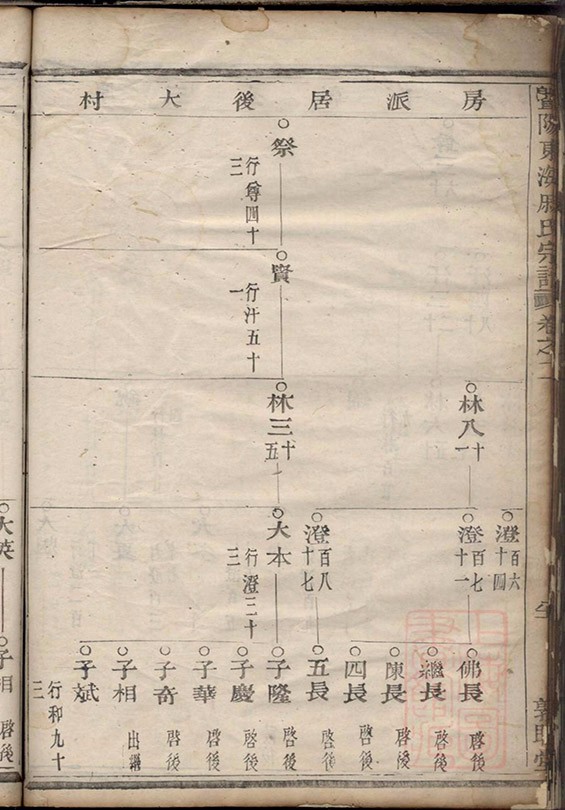 暨陽東海戚氏宗譜 卷之二
房派居後大村
祭 行尊四十三
賢 行汗五十一
林八十一
林三十五
澄百六十四
澄百七十一
澄百八十七
大本 行澄三十三
佛長 啓後
繼長 啓後
陳長 啓後
四長 啓後
五長 啓後
子隆 啓後
子慶 啓後
子華 啓後
子奇 啓後
子相 出繼
子斌 行和九十三
大英
子相 啓後